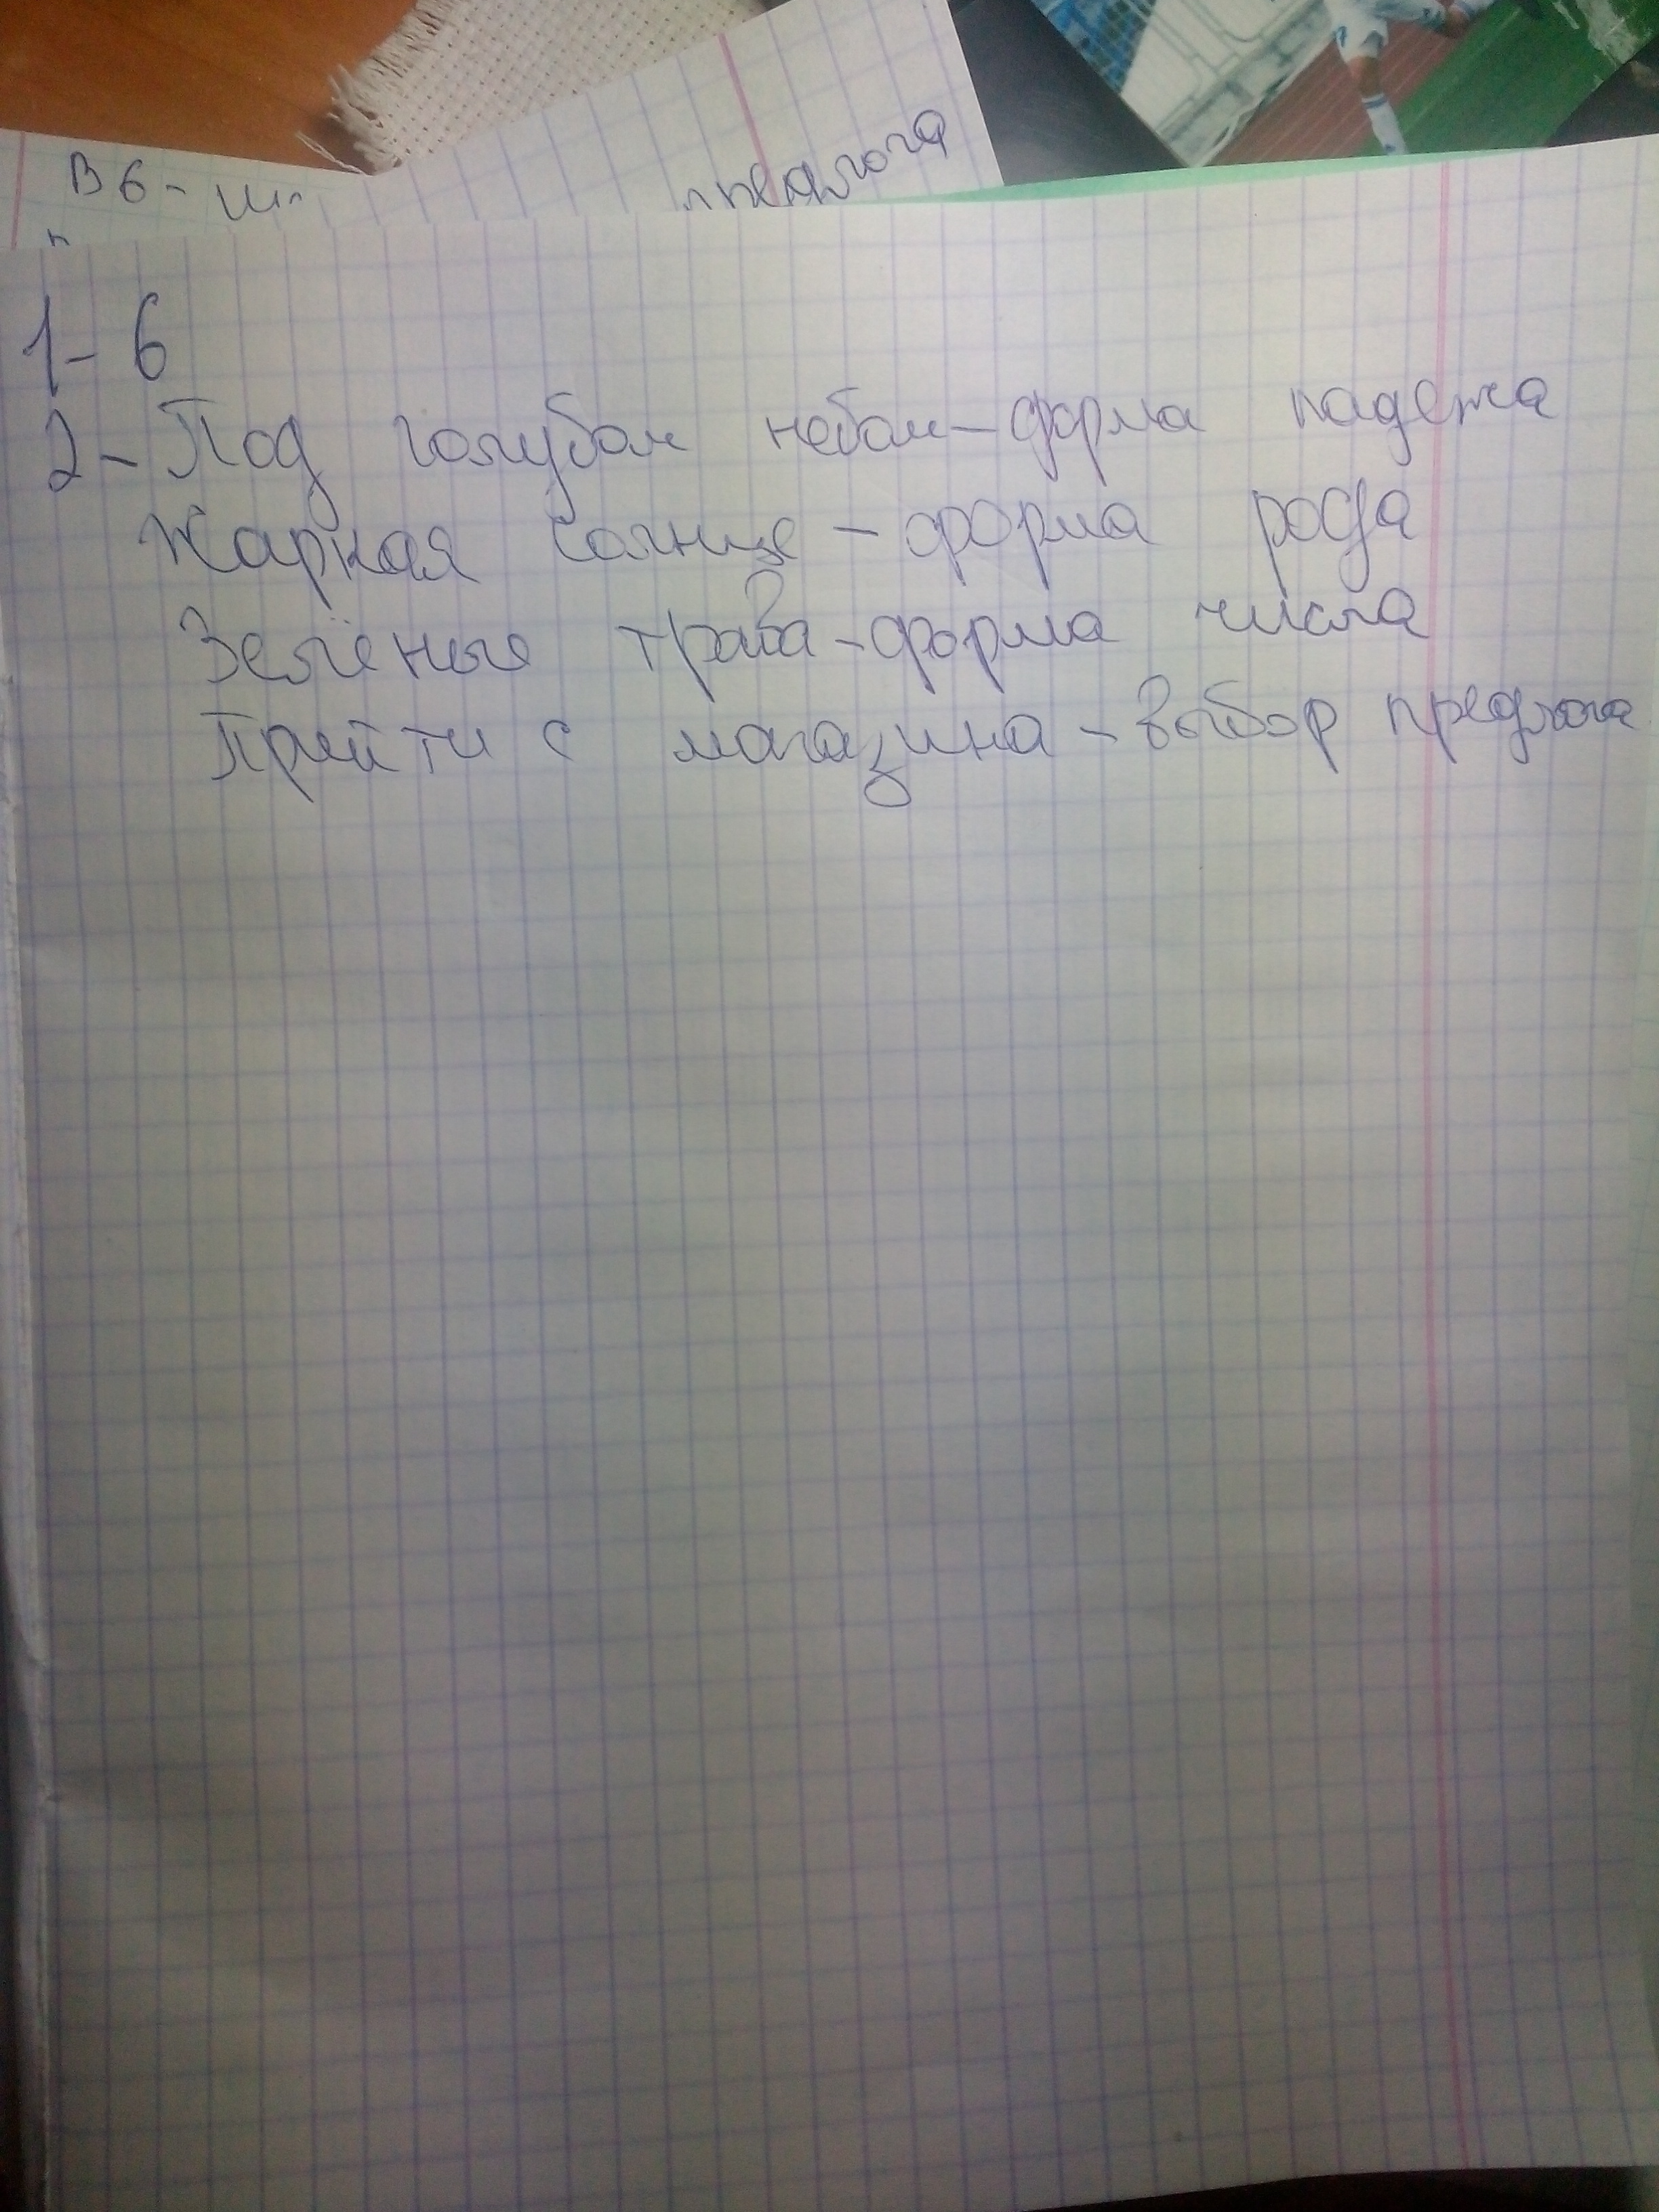 В 6 -
предлога
1 - 6
2 - Под голубом небом - форма падежа
Жаркая солнце - форма рода
Зелёные трава - форма числа
Прийти с магазина - выбор предлога